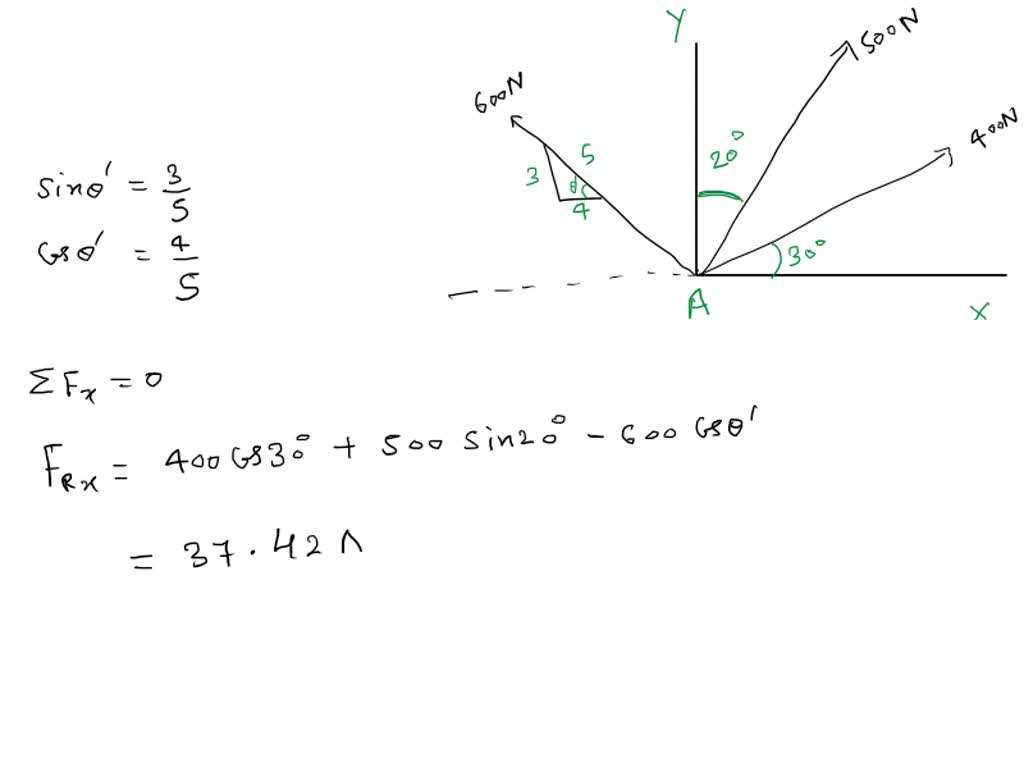 Y
500N
600N
400N
20°
5
3
θ'
4
30°
A
X
sinθ' = 3/5
cosθ' = 4/5
ΣFx = 0
FRx = 400 cos30° + 500 sin20° - 600 cosθ'
= 37.42 N